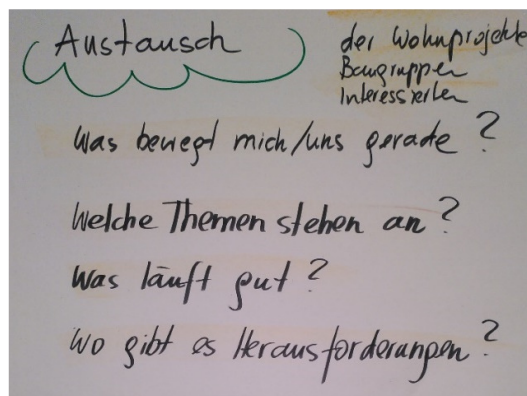 Austausch
der Wohnprojekte
Baugruppen
Interessierten
Was bewegt mich/uns gerade?
Welche Themen stehen an?
Was läuft gut?
Wo gibt es Herausforderungen?